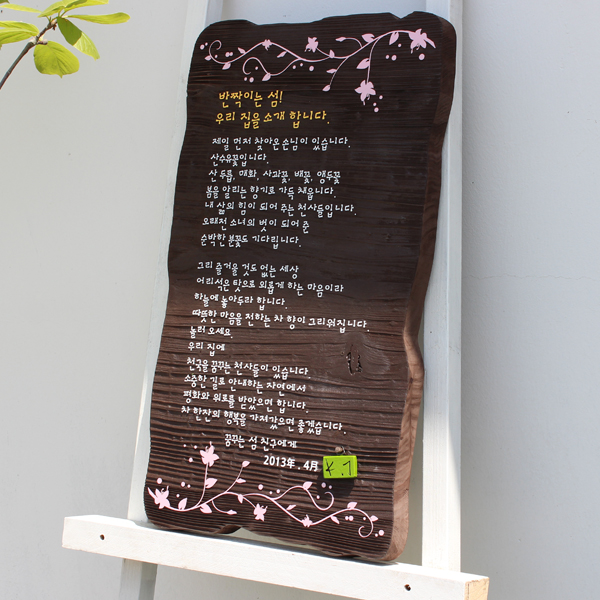 반짝이는 섬!
우리 집을 소개 합니다.
제일 먼저 찾아온 손님이 있습니다.
산수유꽃입니다.
산두릅, 매화, 사과꽃, 배꽃, 앵두꽃
봄을 알리는 향기로 가득 채웁니다.
내 삶의 힘이 되어 주는 천사들입니다.
오래전 소녀의 벗이 되어 준
순박한 분꽃도 기다립니다.
그리 즐거울 것도 없는 세상
어리석은 탓으로 외롭게 하는 마음이라
하늘에 놓아두라 합니다.
따뜻한 마음을 전하는 차 향이 그리워집니다.
놀러 오세요.
우리 집에
천국을 꿈꾸는 천사들이 있습니다.
소중한 길로 안내하는 자연에서
평화와 위로를 받았으면 합니다.
차 한잔의 행복을 가져갔으면 좋겠습니다.
꿈꾸는 섬 친구에게
2013年. 4月
K.1